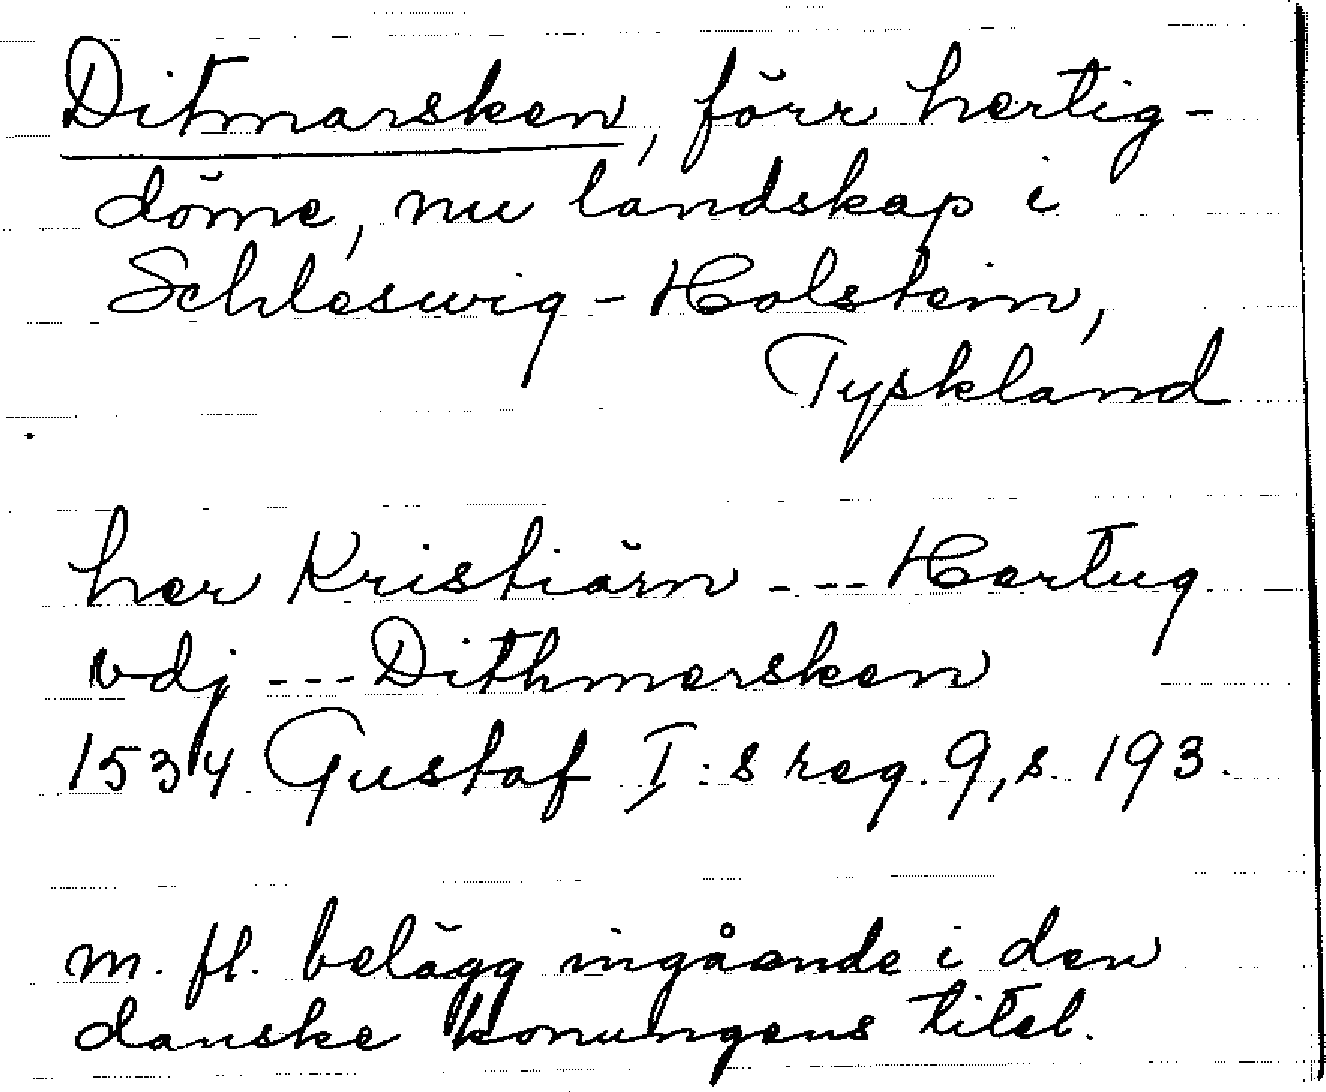 Ditmarsken, förr hertig-
döme, nu landskap i
Schleswig-Holstein,
Tyskland
her Kristiärn --- Hertug
vdj --- Dithmersken
1534 Gustaf I:s reg. 9, s. 193.
m. fl. belägg ingående i den
danske konungens titel.